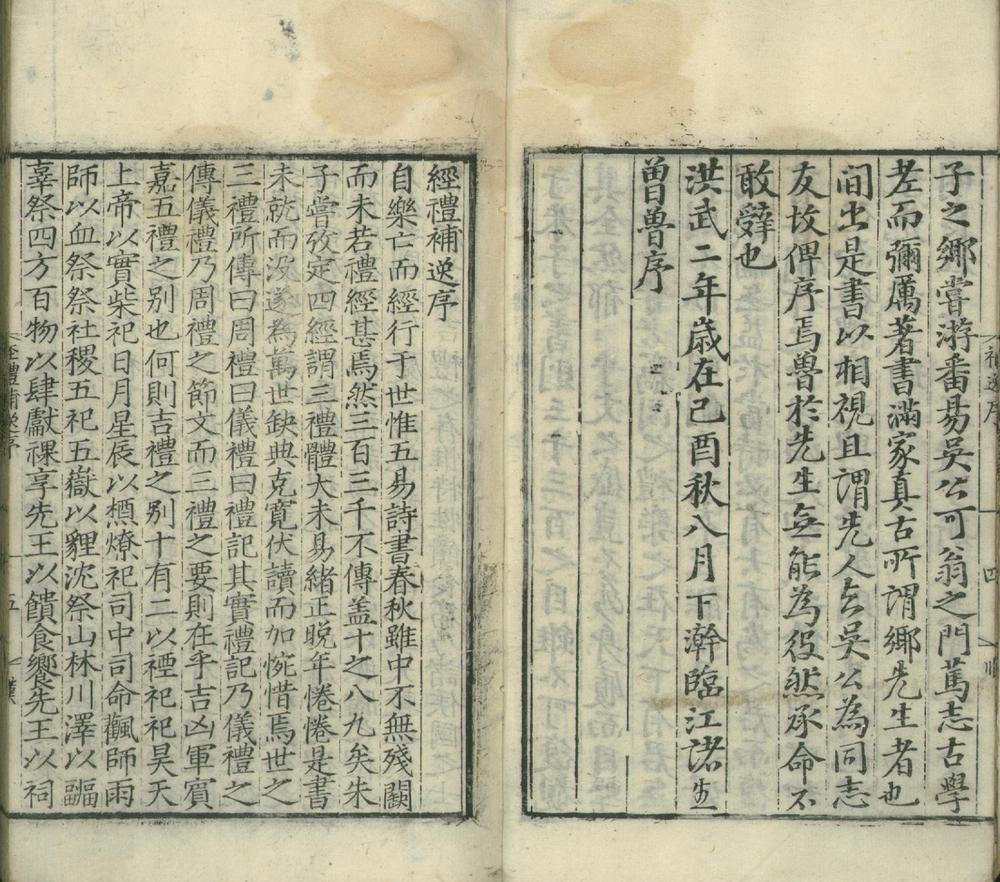 子之鄉嘗游番昜吳公可翁之門篤志古學
老而彌厲著書滿家真古所謂鄉先生者也
間出是書以相視且謂先人與吳公為同志
友故俾序焉魯於先生無能為役然承命不
敢辭也
洪武二年歲在己酉秋八月下澣臨江諸生
曾魯序
經禮補逸序
自樂亡而經行于世惟五易詩書春秋雖中不無殘闕
而未若禮經甚焉然三百三千不傳盖十之八九矣朱
子嘗攷定四經謂三禮體大未易緒正晚年惓惓是書
未就而没遂為萬世缺典克寬伏讀而加惋惜焉世之
三禮所傳曰周禮曰儀禮曰禮記其實禮記乃儀禮之
傳儀禮乃周禮之節文而三禮之要則在乎吉凶軍賓
嘉五禮之别也何則吉禮之别十有二以禋祀祀昊天
上帝以實柴祀日月星辰以槱燎祀司中司命飌師雨
師以血祭祭社稷五祀五嶽以貍沈祭山林川澤以疈
辜祭四方百物以肆獻祼享先王以饋食饗先王以祠
經禮補逸序
五